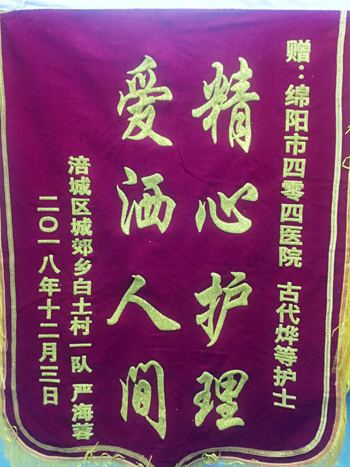 赠：绵阳市四零四医院 古代烨等护士
精心护理
爱洒人间
涪城区城郊乡白土村一队 严海蓉
二〇一八年十二月三日